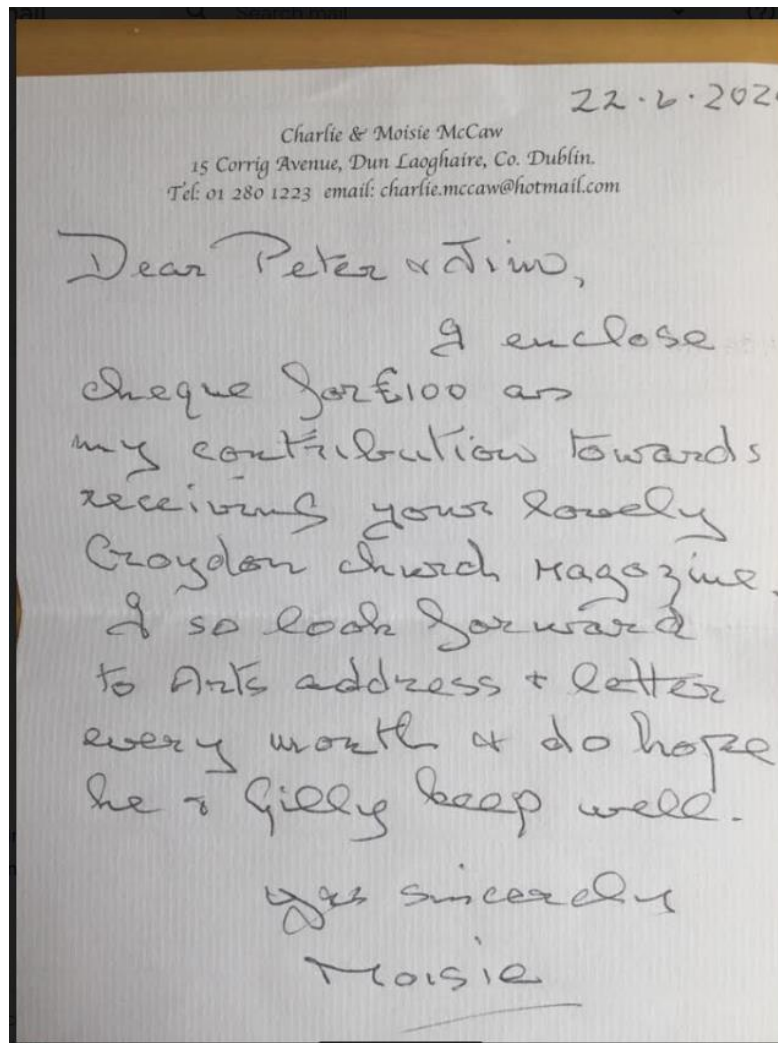 Search mail
22.6.202
Charlie & Moisie McCaw
15 Corrig Avenue, Dun Laoghaire, Co. Dublin.
Tel: 01 280 1223 email: charlie.mccaw@hotmail.com
Dear Peter & Jim,
I enclose
cheque for £100 as
my contribution towards
receiving your lovely
Croydon church Magazine.
I so look forward
to Arts address + letter
every month & do hope
he & Gilly keep well.
sincerely
Moisie